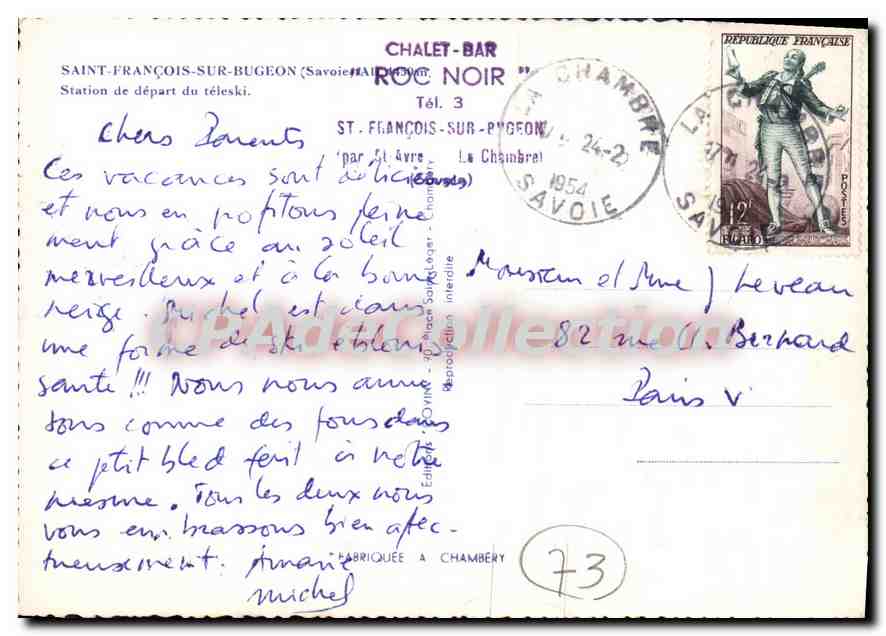 SAINT-FRANÇOIS-SUR-BUGEON (Savoie) Alt. 1450m.
Station de départ du téleski.
CHALET-BAR
"ROC NOIR"
Tél. 3
ST-FRANÇOIS-SUR-BUGEON
par St Avre La Chambre
(Savoie)
LA CHAMBRE
24-2
1954
SAVOIE
LA CHAMBRE
SAVOIE
RÉPUBLIQUE FRANÇAISE
POSTES
12F
FIGARO
Chers Parents
Ces vacances sont
et nous en profitons pleine
ment grâce au soleil
merveilleux et à la bonne
neige. Michel est dans
une forme de ski éblouis
sante !!! Nous nous amu
sons comme des fous dans
ce ptit bled fait à notre
mesure. Tous les deux nous
vous embrassons bien afec-
tueusement.
Michel
Monsieur et Mme J Leveau
82 rue C. Bernard
Paris V
Editions - 70, Place Saint-Léger - Chambéry
Reproduction interdite
FABRIQUÉE A CHAMBÉRY
73
CPAdeCollection